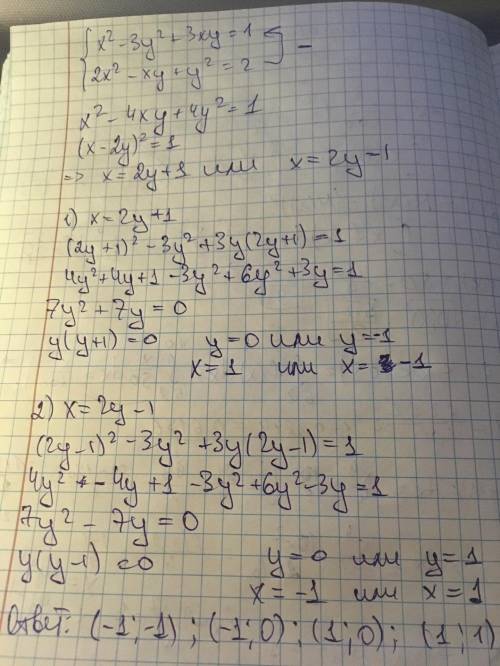 { x² - 3y² + 3xy = 1
{ 2x² - xy + y² = 2 } -
x² - 4xy + 4y² = 1
(x - 2y)² = 1
=> x = 2y + 1 или x = 2y - 1
1) x = 2y + 1
(2y + 1)² - 3y² + 3y(2y + 1) = 1
4y² + 4y + 1 - 3y² + 6y² + 3y = 1
7y² + 7y = 0
y(y + 1) = 0 y = 0 или y = -1
x = 1 или x = -1
2) x = 2y - 1
(2y - 1)² - 3y² + 3y(2y - 1) = 1
4y² - 4y + 1 - 3y² + 6y² - 3y = 1
7y² - 7y = 0
y(y - 1) = 0 y = 0 или y = 1
x = -1 или x = 1
Ответ: (-1; -1); (-1; 0); (1; 0); (1; 1)